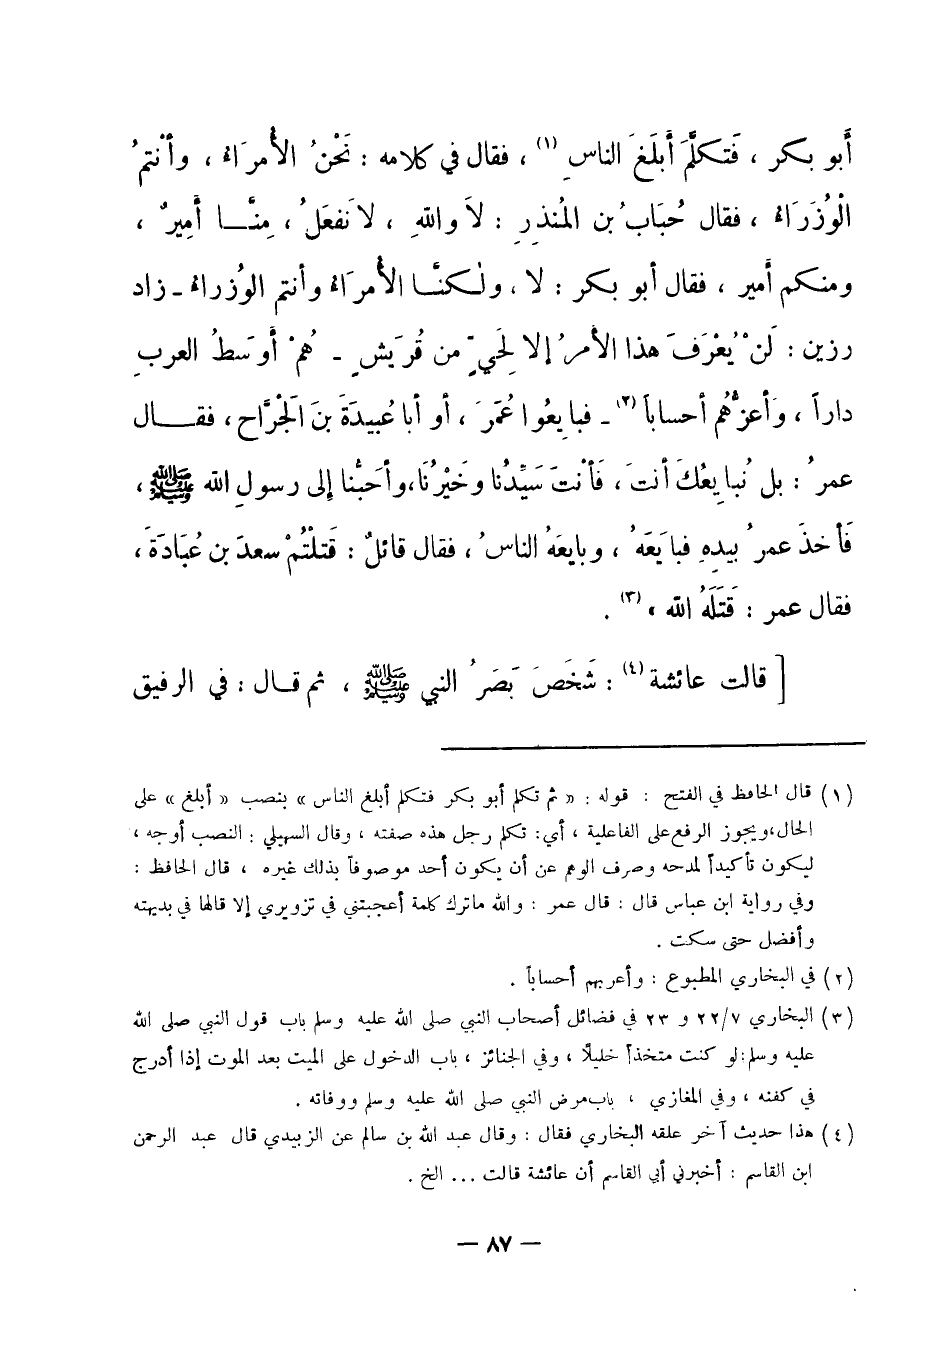 أبو بكر ، فَتكلَّمَ أَبلَغَ الناسِ (١) ، فقال في كلامه : نَحْنُ الأُمرَاءُ ، وأنْتمُ
الْوُزَرَاءُ ، فقال حُبَابُ بن المُنذِرِ : لاَ واللهِ ، لا نَفعَلُ ، مِنَّــا أَمِيرٌ ،
ومنكم أَمير ، فقال أبو بكر : لا ، ولٰـكنَّـا الأُمرَاءُ وأنتم الوُزراءُ ـ زاد
رزين : لَنْ يُعْرَفَ هذا الأمرُ إلا لِحَيٍّ من قُرَيشٍ ـ هُمْ أَوسَطُ العربِ
داراً ، وَأَعزُّهُم أحساباً (٢) ـ فبايِعُوا عُمَرَ ، أو أبا عُبيدَةَ بنَ الجَرَّاحِ ، فقــــال
عمرُ : بل نُبايِعُكَ أنتَ ، فَأنْتَ سَيِّدُنا وخَيْرُنَا، وأَحَبُّنا إلى رسولِ الله ﷺ ،
فَأخذَ عمرُ بيدِهِ فبايَعَهُ ، وبايعَهُ الناسُ ، فقال قائلٌ : قَتلْتُمْ سعدَ بن عُبَادَةَ ،
فقال عمر : قَتَلَهُ الله ، (٣) .
[ قالت عائشة (٤) : شَخَصَ بَصَرُ النبي ﷺ ، ثم قــال : في الرفيق
(١) قال الحافظ في الفتح : قوله : « ثم تكلم أبو بكر فتكلم أبلغ الناس » بنصب « أبلغ » على
الحال،ويجوز الرفع على الفاعلية ، أي: تكلم رجل هذه صفته ، وقال السهيلي : النصب أوجه ،
ليكون تأكيداً لمدحه وصرف الوهم عن أن يكون أحد موصوفاً بذلك غيره ، قال الحافظ :
وفي رواية ابن عباس قال : قال عمر : والله ماترك كلمة أعجبتني في تزويري إلا قالها في بديهته
وأفضل حتى سكت .
(٢) في البخاري المطبوع : وأعربهم أحساباً .
(٣) البخاري ٢٢/٧ و ٢٣ في فضائل أصحاب النبي صلى الله عليه وسلم باب قول النبي صلى الله
عليه وسلم:لو كنت متخذاً خليلًا ، وفي الجنائز ، باب الدخول على الميت بعد الموت إذا أدرج
في كفنه ، وفي المغازي ، باب مرض النبي صلى الله عليه وسلم ووفاته .
(٤) هذا حديث آخر علقه البخاري فقال : وقال عبد الله بن سالم عن الزبيدي قال عبد الرحمن
ابن القاسم : أخبرني أبي القاسم أن عائشة قالت ... الخ .
— ٨٧ —